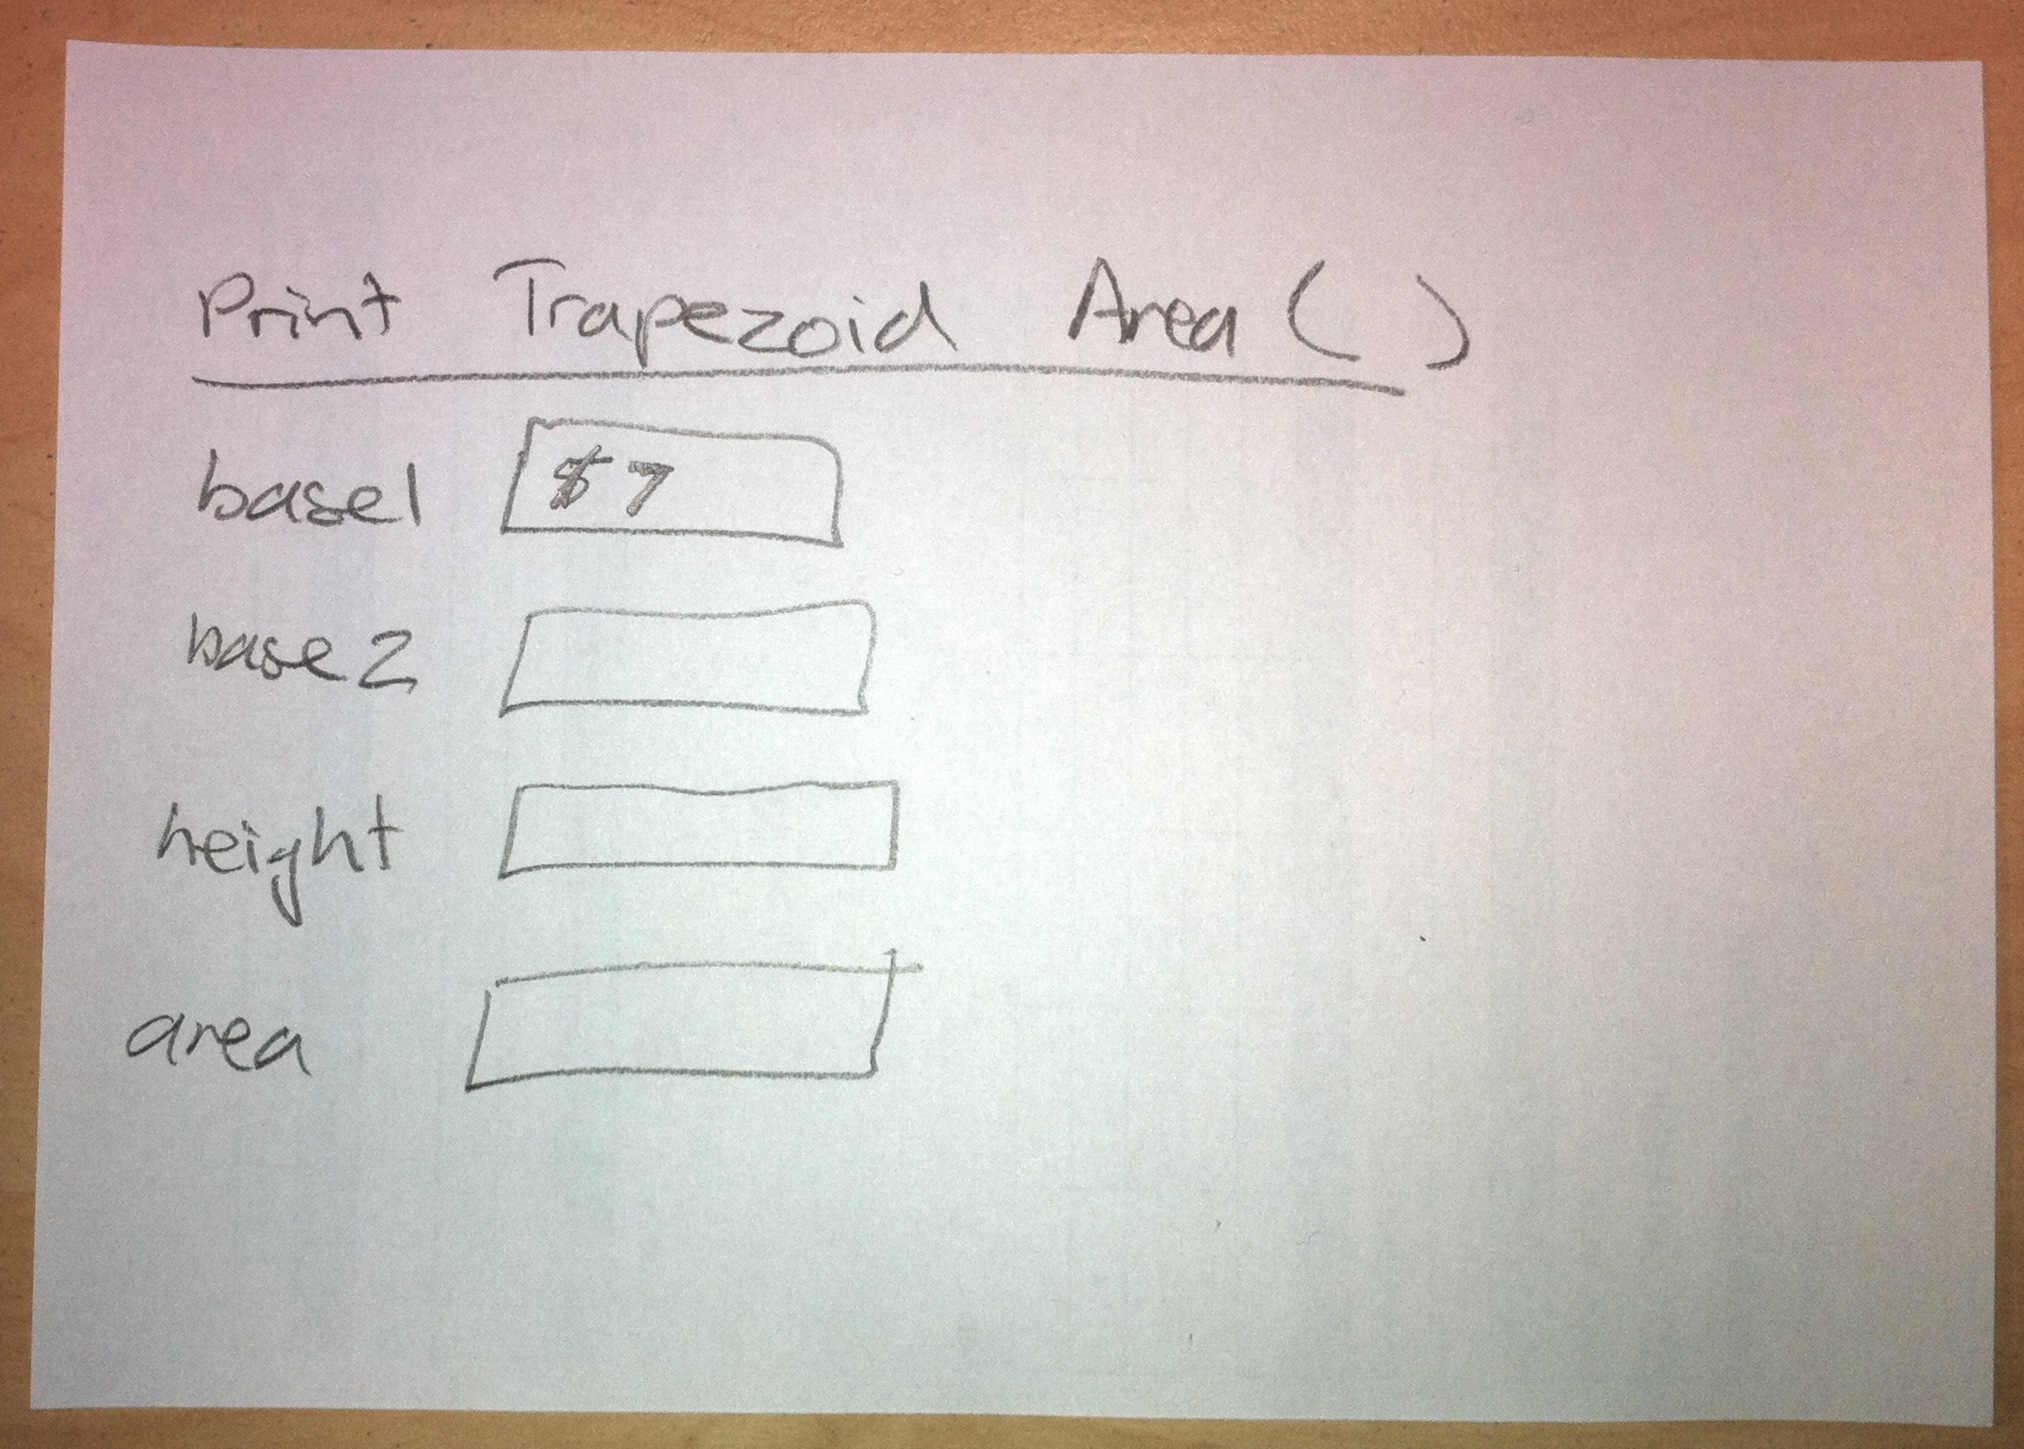 Print Trapezoid Area ( )
base1 7
base2
height
area